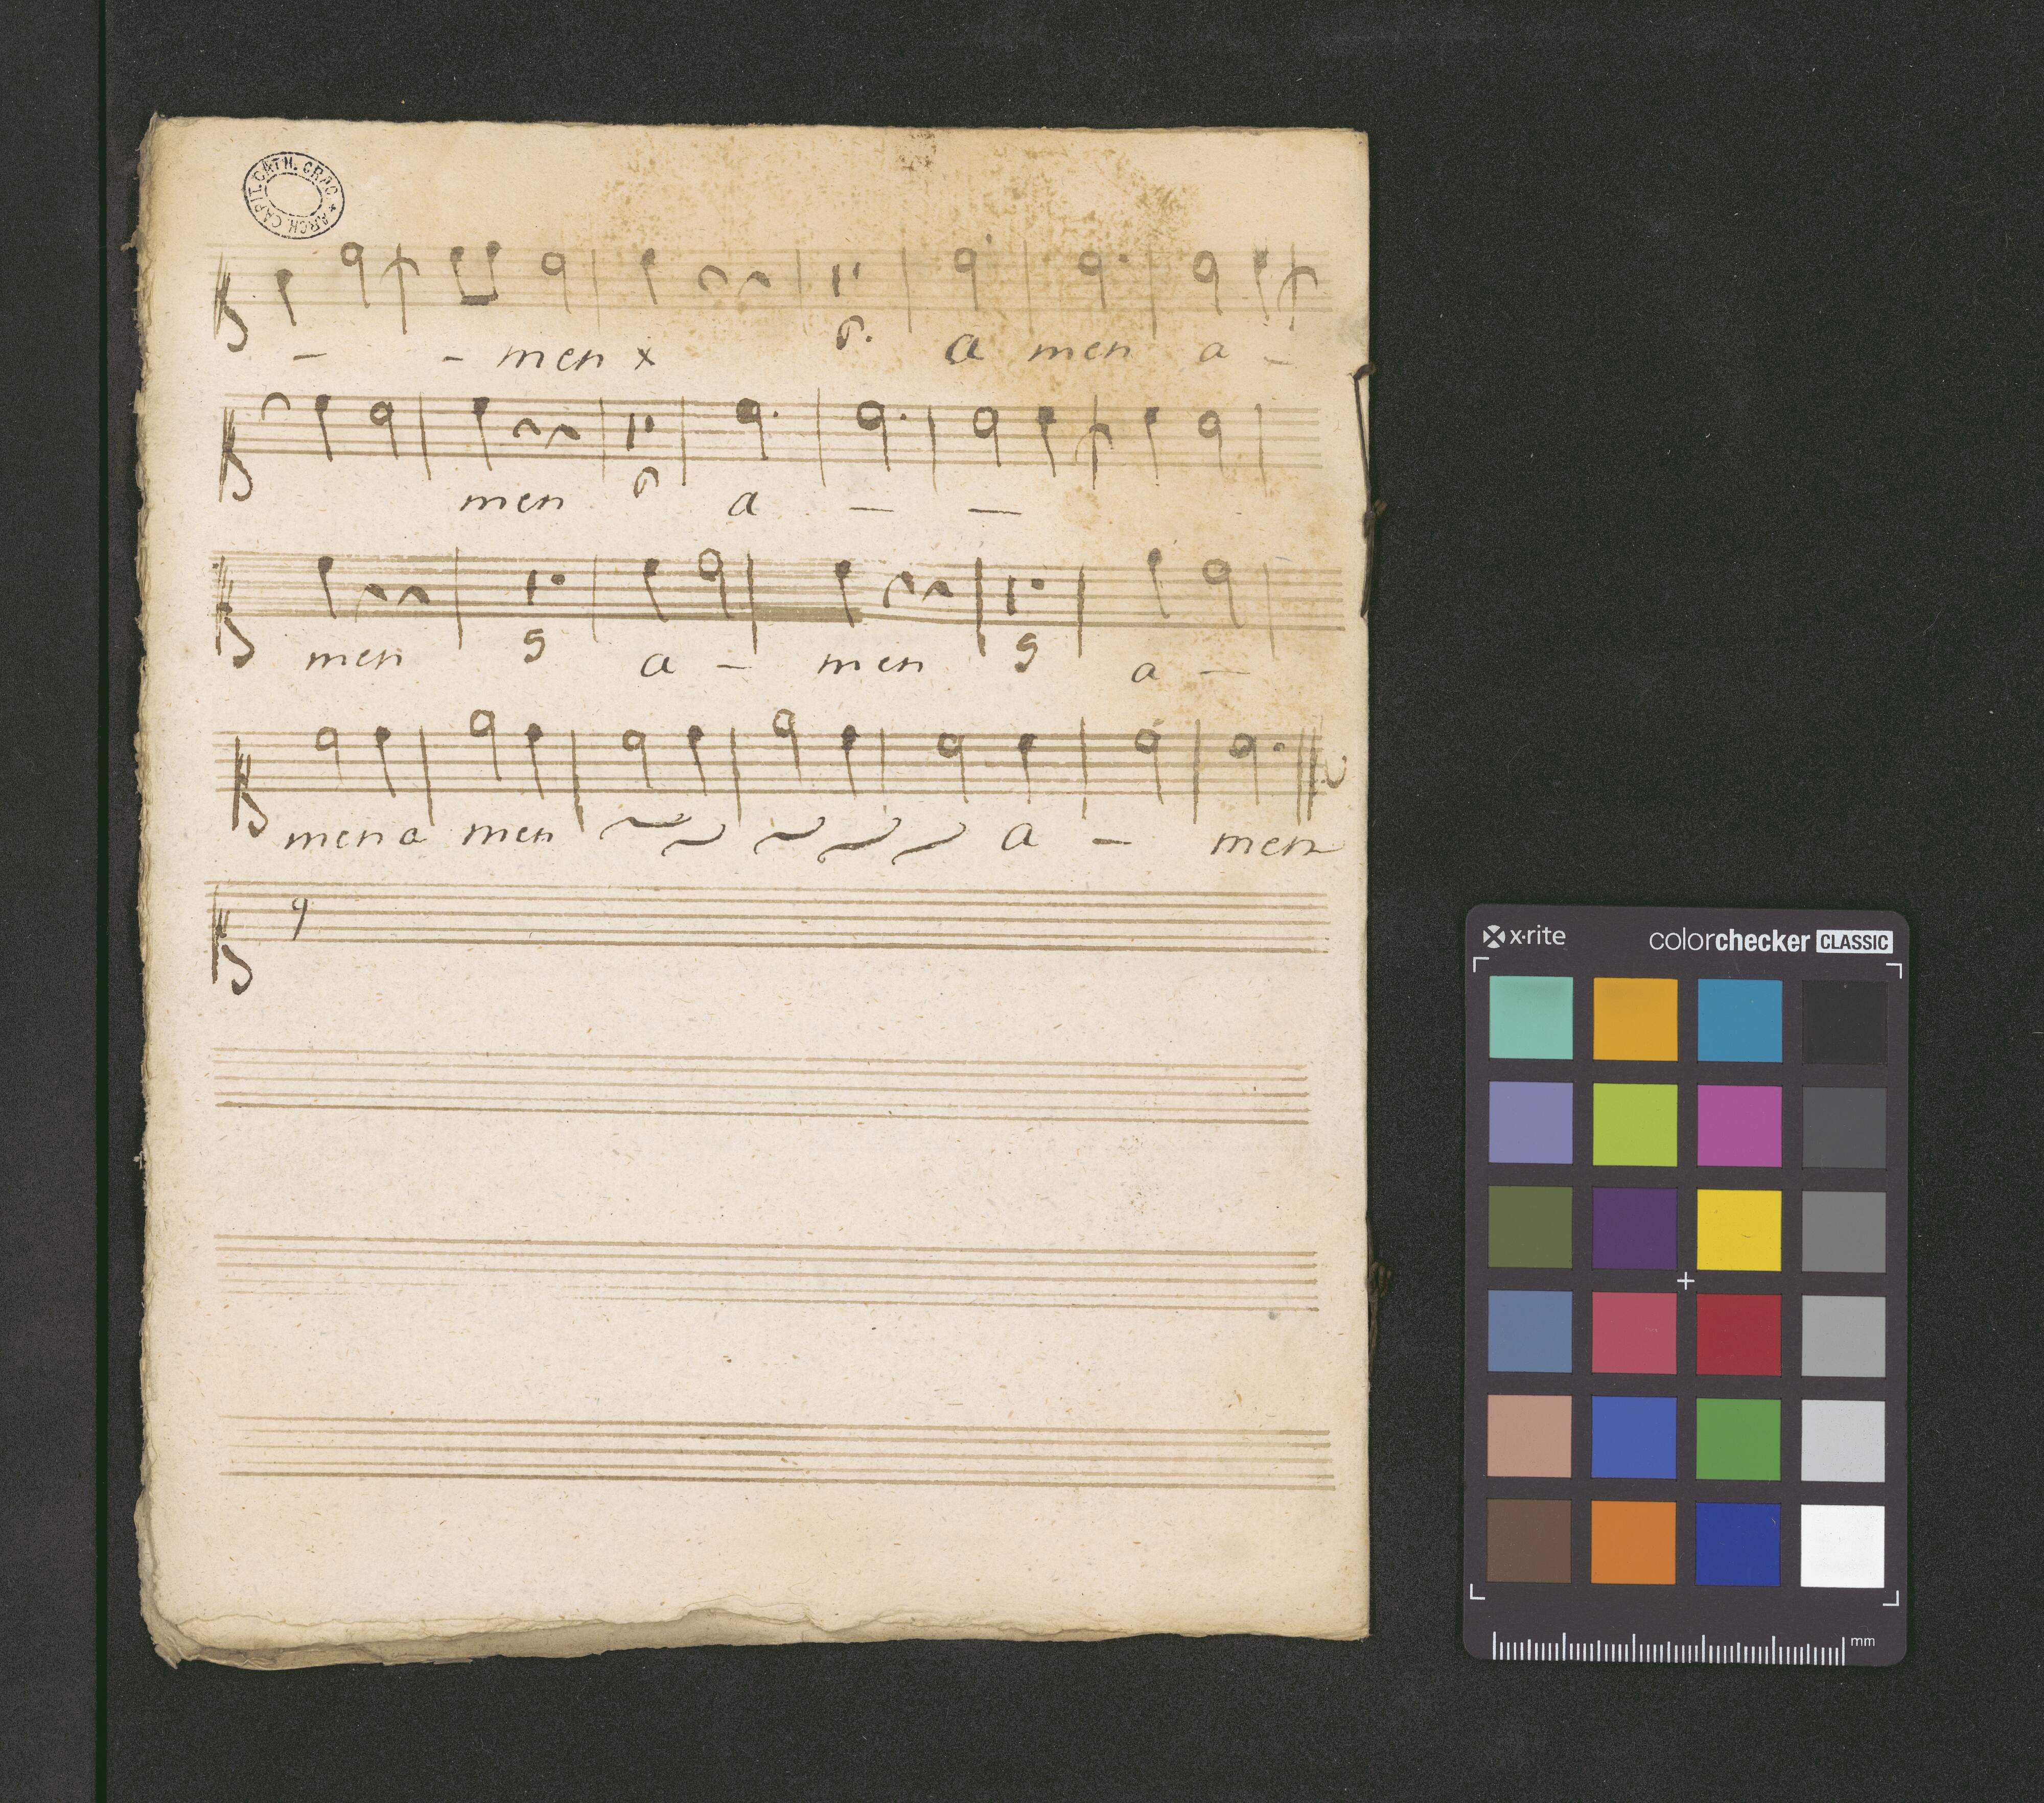 ARCH. CAPIT. CATH. CRAC. *
- - men x 6. a men a -
men 6 a - -
men 5 a - men 5 a -
men a men a - men
x·rite colorchecker CLASSIC
mm